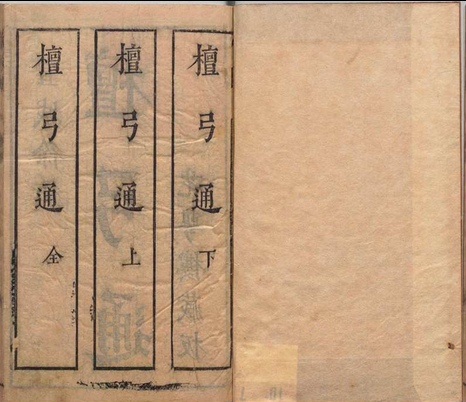 檀弓通 下
檀弓通 上
檀弓通 全